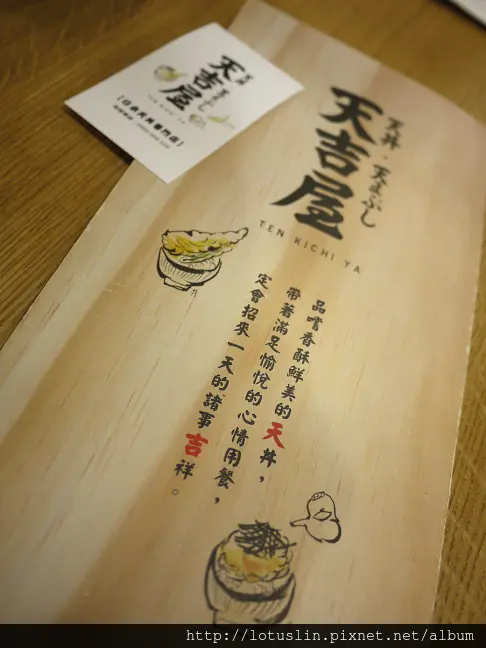 天丼・天まぶし
天吉屋
TEN KICHI YA
品嚐香酥鮮美的天丼，
帶著滿足愉悅的心情用餐，
定會招來一天的諸事吉祥。
天吉屋
TEN KICHI YA
【日式天丼專門店】
http://lotuslin.pixnet.net/album